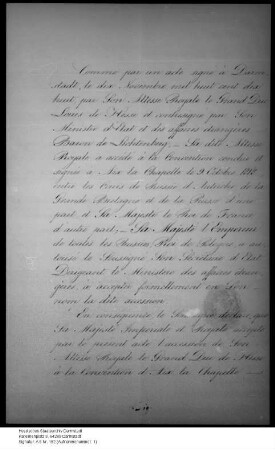 Comme par un acte signé à Darm-
stadt, le dix Novembre mil huit cent dix
huit par Son Altesse Royale le Grand Duc
Louis de Hesse et contresigné par Son
Ministre d'Etat et des affaires étrangères
Baron de Lichtenberg, Sa dite Altesse
Royale a accédé à la Convention conclue et
signée à Aix la Chapelle le 9 Octobre 1818
entre les Cours de Russie, d'Autriche de la
Grande Bretagne et de la Prusse d'une
part, et Sa Majesté le Roi de France
d'autre part; Sa Majesté l'Empereur
de toutes les Russies, Roi de Pologne, a au-
torisé le Soussigné Son Secrétaire d'Etat
Dirigeant le Ministère des affaires étran-
gères, à accepter formellement en Son
nom la dite accession
En conséquence le Soussigné déclare, que
Sa Majesté Impériale et Royale accepte
par le présent acte l'accession de Son
Altesse Royale le Grand Duc de Hesse
à la Convention d'Aix la Chapelle
Hessisches Staatsarchiv Darmstadt
Karolinenplatz 3, 64289 Darmstadt